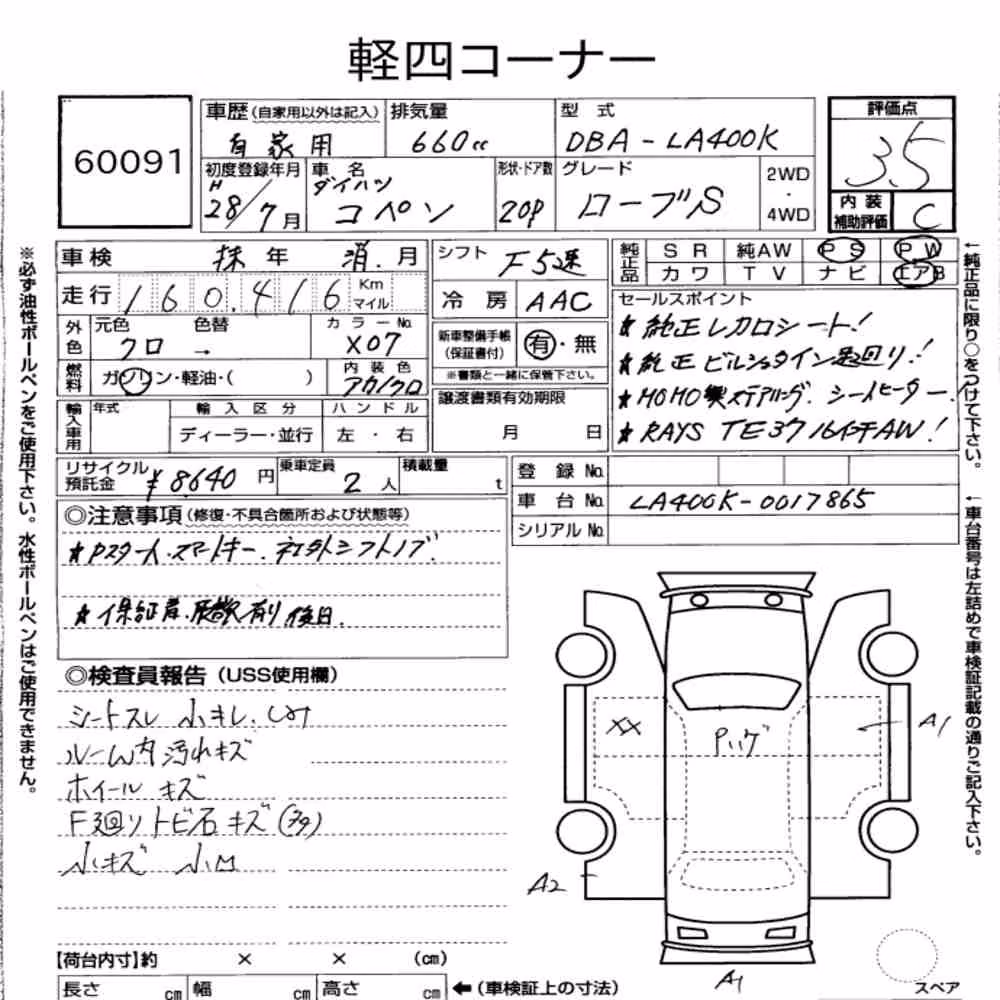 軽四コーナー
60091
車歴(自家用以外は記入) 自家用
排気量 660cc
型式 DBA-LA400K
評価点 3.5
初度登録年月 H28/7月
車名 ダイハツ コペン
形状・ドア数 20P
グレード ローブS
2WD・4WD
内装補助評価 C
車検 抹年 消.月
シフト F5速
純正品 SR 純AW PS PW
カワ TV ナビ エアB
走行 160,416 Km マイル
冷房 AAC
セールスポイント
★純正レカロシート!
★純正ビルシュタイン足廻り!
★MOMO製ステアリング. シートヒーター.
★RAYS TE37 16インチAW!
外色 元色 クロ 色替 → カラーNo. X07
新車整備手帳(保証書付) 有・無
※書類と一緒に保管下さい。
燃料 ガソリン・軽油・( )
内装色 アカ/クロ
譲渡書類有効期限 月 日
輸入車用 年式 輸入区分 ディーラー・並行 ハンドル 左・右
リサイクル預託金 ¥8640円
乗車定員 2人
積載量 t
登録No.
車台No. LA400K-0017865
シリアルNo.
◎注意事項(修復・不具合箇所および状態等)
★Pスタート.スマートキー.社外シフトノブ.
★保証書.取説有り後日.
◎検査員報告(USS使用欄)
シートスレ 小キレ.シミ
ルーム内汚れキズ
ホイールキズ
F廻りトビ石キズ(多)
小キズ 小凹
XX
Pハゲ
A1
A2
A1
スペア
【荷台内寸】約 × × (cm)
長さ cm 幅 cm 高さ cm ←(車検証上の寸法)
※必ず油性ボールペンをご使用下さい。水性ボールペンはご使用できません。
←純正品に限り○をつけて下さい。
←車台番号は左詰めで車検証記載の通りご記入下さい。